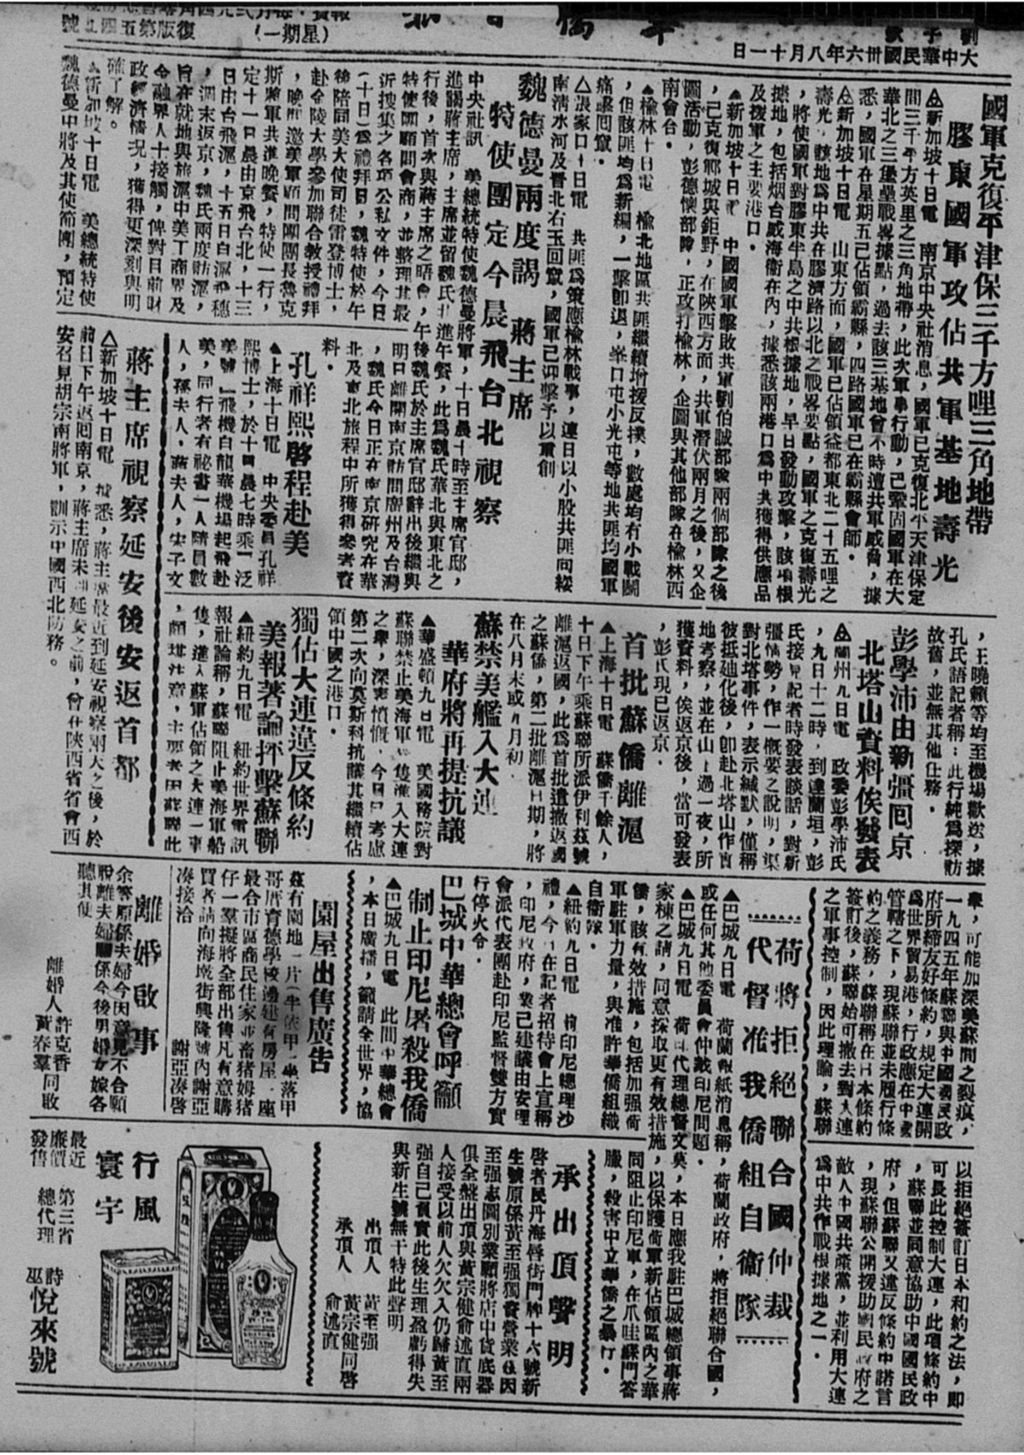 中華民國卅六年八月十一日
(星期一)
國軍克復平津保三千方哩三角地帶
膠東國軍攻佔共軍基地壽光
△新加坡十日電 南京中央社消息，國軍已克復北平天津保定
間三千平方英里之三角地帶，此次軍事行動，已鞏固國軍在大
華北之三堡壘戰畧據點，過去該三基地曾不時遭共軍威脅，據
悉，國軍在星期五已佔領霸縣，四路國軍已在霸縣會師。
△新加坡十日電 山東方面，國軍已佔領益都東北二十五哩之
壽光，該地為中共在膠濟路以北之戰畧要點，國軍之克復壽光
，將使國軍對膠東半島之中共根據地，早日發動攻擊，該項根
據地，包括烟台威海衛在內，據悉該兩港口為中共獲得供應品
及援軍之主要港口。
▲新加坡十日電 中國國軍擊敗共軍劉伯誠部隊兩個部隊之後
，已克復鄆城與鉅野，在陝西方面，共軍潛伏兩月之後，又企
圖活動，彭德懷部隊，正攻打榆林，企圖與其他部隊在榆林西
南會合。
▲榆林十日電 榆北地區共匪繼續增援反撲，數處均有小戰鬭
，但該匪均為新編，一擊即退，
痛擊回竄。
△張家口十日電 共匪為策應榆林戰事，連日以小股共匪向綏
南清水河及晉北右玉回竄，國軍已迎擊予以重創
魏德曼兩度謁 蔣主席
特使團定今晨飛台北視察
中央社訊 美總統特使魏德曼將軍，十日晨十時至主席官邸，
進謁蔣主席，主席並留魏氏共進午餐，此為魏氏華北與東北之
行後，首次與蔣主席之晤會，午後魏氏於主席官邸辭出後繼與
特使團顧問會商，並整理其最
近搜集之各項公私文件，今日
(十日)為禮拜日，魏特使於午
後陪同美大使司徒雷登博士，
赴金陵大學參加聯合教授禮拜
，晚間邀美軍顧問團團長魯克
斯將軍共進晚餐，特使一行，
定十一日晨由京飛台北，十三
日由台飛滬，十五日自滬飛穗
，週末返京，魏氏兩度訪滬，
旨在就地與旅滬中美工商界及
金融界人士接觸，俾對目前財
政經濟情况，獲得更深刻與明
確了解。
▲新加坡十日電 美總統特使
魏德曼中將及其使節團，預定
明日離開南京訪問廣州及台灣
，魏氏今日正在南京研究在華
北及東北旅程中所獲得參考資
料。
孔祥熙啓程赴美
▲上海十日電 中央委員孔祥
熙博士，於十日晨七時乘「泛
美號」飛機自龍華機場起飛赴
美，同行者有祕書一人隨員數
人，孫夫人，蔣夫人，宋子文
，王曉籟等均至機場歡送，據
孔氏語記者稱：此行純為探訪
故舊，並無其他任務。
蔣主席視察延安後安返首都
△新加坡十日電 據悉，蔣主席最近到延安視察兩天之後，於
前日下午返囘南京，蔣主席未到延安之前，曾在陝西省省會西
安召見胡宗南將軍，訓示中國西北防務。
彭學沛由新疆囘京
北塔山資料俟發表
△蘭州九日電 政委彭學沛氏
，九日十二時，到達蘭垣，彭
氏接見記者時發表談話，對新
疆情勢，作一概要之說明，渠
對北塔事件，表示緘默，僅稱
彼抵迪化後，即赴北塔山作實
地考察，並在山上過一夜，所
獲資料，俟返京後，當可發表
，彭氏現已返京。
首批蘇僑離滬
▲上海十日電 蘇僑千餘人，
十日下午乘蘇聯所派伊利茲號
離滬返國，此為首批遣撤返國
之蘇僑，第二批離滬日期，將
在八月末或九月初。
蘇禁美艦入大連
華府將再提抗議
▲華盛頓九日電 美國務院對
蘇聯禁止美海軍艦隻進入大連
之舉，深表憤慨，今日日考慮
第二次向莫斯科抗議其繼續佔
領中國之港口。
獨佔大連違反條約
美報著論抨擊蘇聯
▲紐約九日電 紐約世界電訊
報社論稱，蘇聯阻止美海軍船
隻，進入蘇軍佔領之大連一事
，頗堪注意，主要者因蘇聯此
舉，可能加深美蘇間之裂痕，
一九四五年蘇聯與中國國民政
府所締友好條約，規定大連開
為世界貿易港，行政應在中國
管轄之下，現蘇聯並未履行條
約之義務，蘇聯稱在日本條約
簽訂後，蘇聯始可撤去對大連
之軍事控制，因此理論，蘇聯
以拒絕簽訂日本和約之法，即
可長此控制大連，此項條約中
，蘇聯並同意協助中國國民政
府，但蘇聯又違反條約中諾言
，現蘇聯公開援助國民政府之
敵人中國共產黨，並利用大連
為中共作戰根據地之一。
荷將拒絕聯合國仲裁
代督准我僑組自衛隊
▲巴城九日電 荷蘭報紙消息稱，荷蘭政府，將拒絕聯合國，
或任何其他委員會仲裁印尼問題。
▲巴城九日電 荷印代理總督文莫，本日應我駐巴城總領事蔣
家棟之請，同意採取更有效措施，以保護荷軍新佔領區內之華
僑，該有效措施，包括加强荷
軍駐軍力量，與准許華僑組織
自衛隊。
▲紐約九日電 前印尼總理沙
禮，今日在記者招待會上宣稱
，印尼政府，業已建議由安理
會派代表團赴印尼監督雙方實
行停火令。
巴城中華總會呼籲
制止印尼屠殺我僑
▲巴城九日電 此間中華總會
，本日廣播，籲請全世界，協
同阻止印尼軍，在爪哇蘇門答
臘，殺害中立華僑之暴行。
園屋出售廣告
茲有園地一片(半依甲)坐落甲
哥厝育德學校邊建有房屋一座
最合市區商民住家並畜猪姆猪
仔一羣擬將全部出售凡有意購
買者請向海墘街興隆號內謝亞
凑接洽
謝亞凑啓
離婚啟事
余等原係夫婦今因意見不合願
脫離夫婦關係今後男婚女嫁各
聽其便
離婚人 許克香
黃春羣同啟
承出頂聲明
啓者民丹海唇街門牌十六號新
生號原係黃至强獨資營業茲因
至强志圖別業願將店中貨底器
俱全盤出頂與黃宗健俞述直兩
人接受以前人欠欠入仍歸黃至
强自己負責此後生理盈虧得失
與新生號無干特此聲明
出頂人 黃至强
承頂人 黃宗健同啓
俞述直
行風
寰宇
最近
廉價
發售
第三省
總代理
詩
巫
悅來號